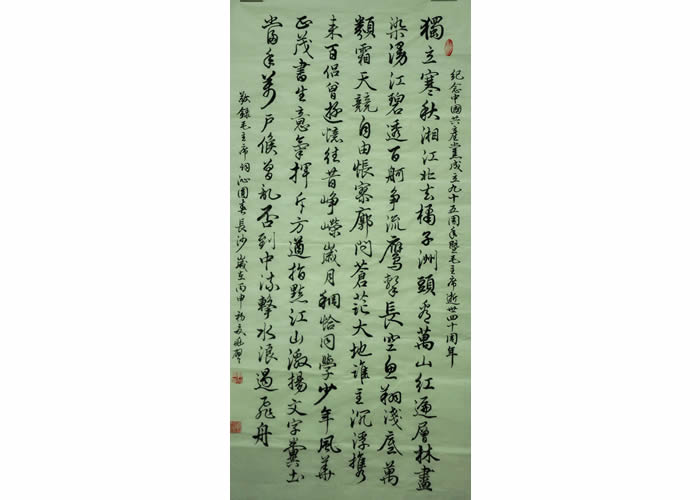 紀念中國共產黨成立九十五周年暨毛主席逝世四十周年
獨立寒秋湘江北去橘子洲頭看萬山紅遍層林盡
染漫江碧透百舸爭流鷹擊長空魚翔淺底萬
類霜天競自由悵寥廓問蒼茫大地誰主沉浮攜
來百侶曾遊憶往昔崢嶸歲月稠恰同學少年風華
正茂書生意氣揮斥方遒指點江山激揚文字糞土
當年萬戶侯曾記否到中流擊水浪遏飛舟
敬錄毛主席詞沁園春長沙歲在丙申初夏